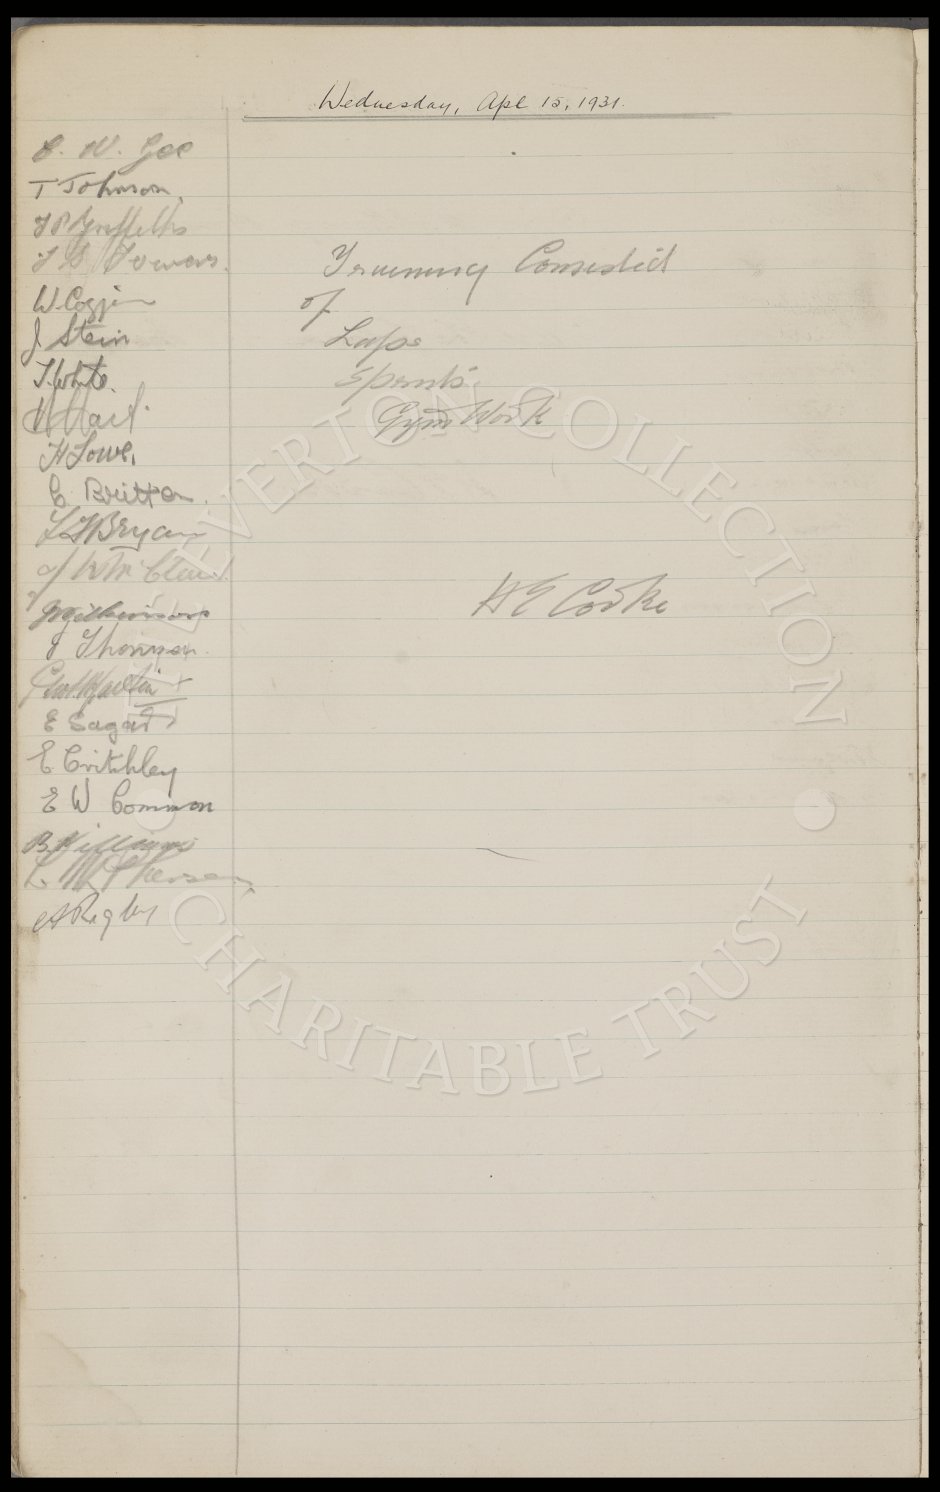 Wednesday, Apl 15, 1931.
C. W. Gee
T Johnson,
T P Griffiths
Training Consistid
of
W Coggin
J. Stein
Laps
T. White.
Sprints.
Gym Work
H Lowe.
C Britton.
L F Bryan
H E Cooke
J Thomson.
Geo. Martin
E Sagar
E. Critchley
E W Common
B Williams
L McPherson
A Rigby
THE EVERTON COLLECTION
CHARITABLE TRUST